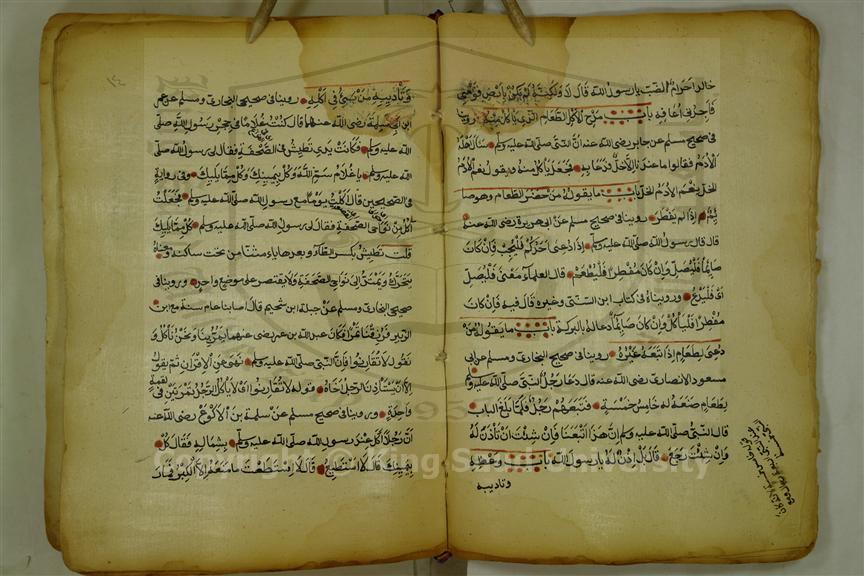 خالد احرام الضب يا رسول الله قال لا ولكنه لم يكن بارض قومي
فاجدني اعافه باب مدح الاكل الطعام الذي ياكل منه روينا
في صحيح مسلم عن جابر رضي الله عنه ان النبي صلى الله عليه وسلم سال اهله
الادم فقالوا ما عندنا الا خل فدعا به فجعل ياكل منه ويقول نعم الادم
الخل نعم الادم الخل باب ما يقوله من حضر الطعام وهو صا
ئم اذا لم يفطر روينا في صحيح مسلم عن ابي هريرة رضي الله عنه
قال قال رسول الله صلى الله عليه وسلم اذا دعي احدكم فليجب فان كان
صائما فليصل وان كان مفطرا فليطعم قال العلماء معنى فليصل
اي فليدع وروينا في كتاب ابن السني وغيره قال فيه فان كان
مفطرا فلياكل وان كان صائما دعا له بالبركة باب ما يقوله من
دعي لطعام اذا تبعه غيره روينا في صحيحي البخاري ومسلم عن ابي
مسعود الانصاري رضي الله عنه قال دعا رجل النبي صلى الله عليه وسلم
لطعام صنعه له خامس خمسة فتبعهم رجل فلما بلغ الباب
قال النبي صلى الله عليه وسلم ان هذا اتبعنا فان شئت ان تأذن له
وان شئت رجع قال بل آذن له يا رسول الله باب وعظه
وتاديبه
وتأديبه من يسيء في اكله روينا في صحيحي البخاري ومسلم عن عمر
ابن ابي سلمة رضي الله عنهما قال كنت غلاما في حجر رسول الله صلى
الله عليه وسلم فكانت يدي تطيش في الصحفة فقال لي رسول الله صلى
الله عليه وسلم يا غلام سم الله وكل بيمينك وكل مما يليك وفي رواية
في الصحيحين قال اكلت يوما مع رسول الله صلى الله عليه وسلم فجعلت
آكل من نواحي الصحفة فقال لي رسول الله صلى الله عليه وسلم كل مما يليك
قلت تطيش بكسر الطاء وبعدها ياء مثناة من تحت ساكنة ومعناه
يتحرك ويمتد الى نواحي الصحفة ولا يقتصر على موضع واحد وروينا في
صحيحي البخاري ومسلم عن جبلة ابن سحيم قال اصابنا عام سنة مع ابن
الزبير فرزقنا تمرا فكان عبد الله بن عمر رضي عنهما يمر بنا ونحن نأكل و
يقول لا تقارنوا فان النبي صلى الله عليه وسلم نهى عن الاقران ثم يقول
الا ان يستأذن الرجل اخاه قوله لا تقارنوا اي لا يأكل الرجل تمرتين في لقمة
واحدة وروينا في صحيح مسلم عن سلمة بن الاكوع رضي الله عنه
ان رجلا اكل عند رسول الله صلى الله عليه وسلم بشماله فقال كل
بيمينك قال لا استطيع قال لا استطعت ما منعه الا الكبر فما
Copyright © King Saud University
1957